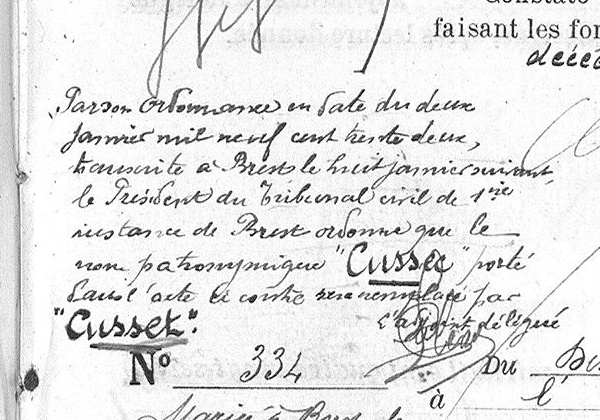 Constate
faisant les fon
décéd
Par son ordonnance en date du deux
janvier mil neuf cent trente deux,
transcrite à Brest le huit janvier suivant,
le Président du Tribunal civil de 1ère
instance de Brest ordonne que le
nom patronymique "Cussec" porté
dans l'acte ci contre sera remplacé par
"Cussez".
L'adjoint délégué
No 334
Du
à l'
Marié à